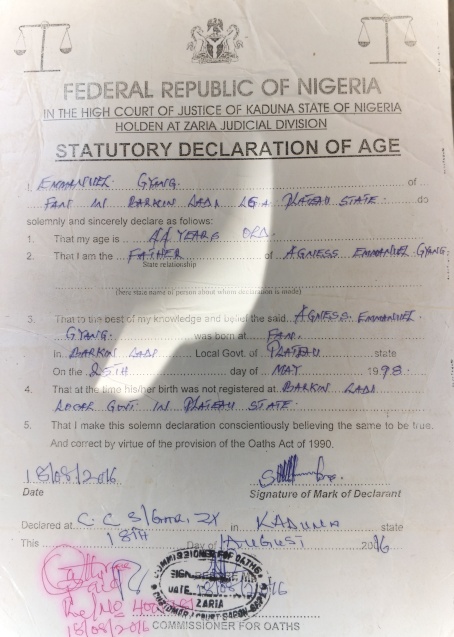 FEDERAL REPUBLIC OF NIGERIA
IN THE HIGH COURT OF JUSTICE OF KADUNA STATE OF NIGERIA
HOLDEN AT ZARIA JUDICIAL DIVISION
STATUTORY DECLARATION OF AGE
I. EMMANUEL GYANG of
FAN IN BARKIN LADI LGA PLATEAU STATE. do
solemnly and sincerely declare as follows:
1. That my age is 44 YEARS OLD.
2. That I am the FATHER of AGNESS EMMANUEL GYANG.
State relationship
(here state name of person about whom declaration is made)
3. That to the best of my knowledge and belief the said AGNESS EMMANUEL
GYANG. was born at FAN.
In BARKIN LADI Local Govt. of PLATEAU state
On the 25TH day of MAY 1998.
4. That at the time his/her birth was not registered at BARKIN LADI
LOCAL GOVT IN PLATEAU STATE.
5. That I make this solemn declaration conscientiously believing the same to be true.
And correct by virtue of the provision of the Oaths Act of 1990.
18/08/2016
Date
Signature of Mark of Declarant
Declared at C.C S/GARI, ZX in KADUNA state
This 18TH Day of AUGUST 2016
COMMISSIONER FOR OATHS
SIGN
DATE 18/08/2016
CUSTOMARY COURT SABON GARI
ZARIA
18/08/2016
COMMISSIONER FOR OATHS